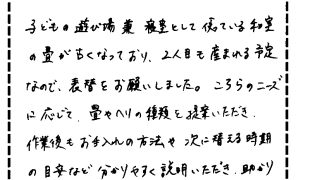 子どもの遊び場兼寝室として使っている和室
の畳が古くなっており、2人目も産まれる予定
なので、表替をお願いしました。こちらのニーズ
に応じて、畳やヘリの種類を提案いただき、
作業後もお手入れの方法や次に替える時期
の目安など分かりやすく説明いただき、助かり